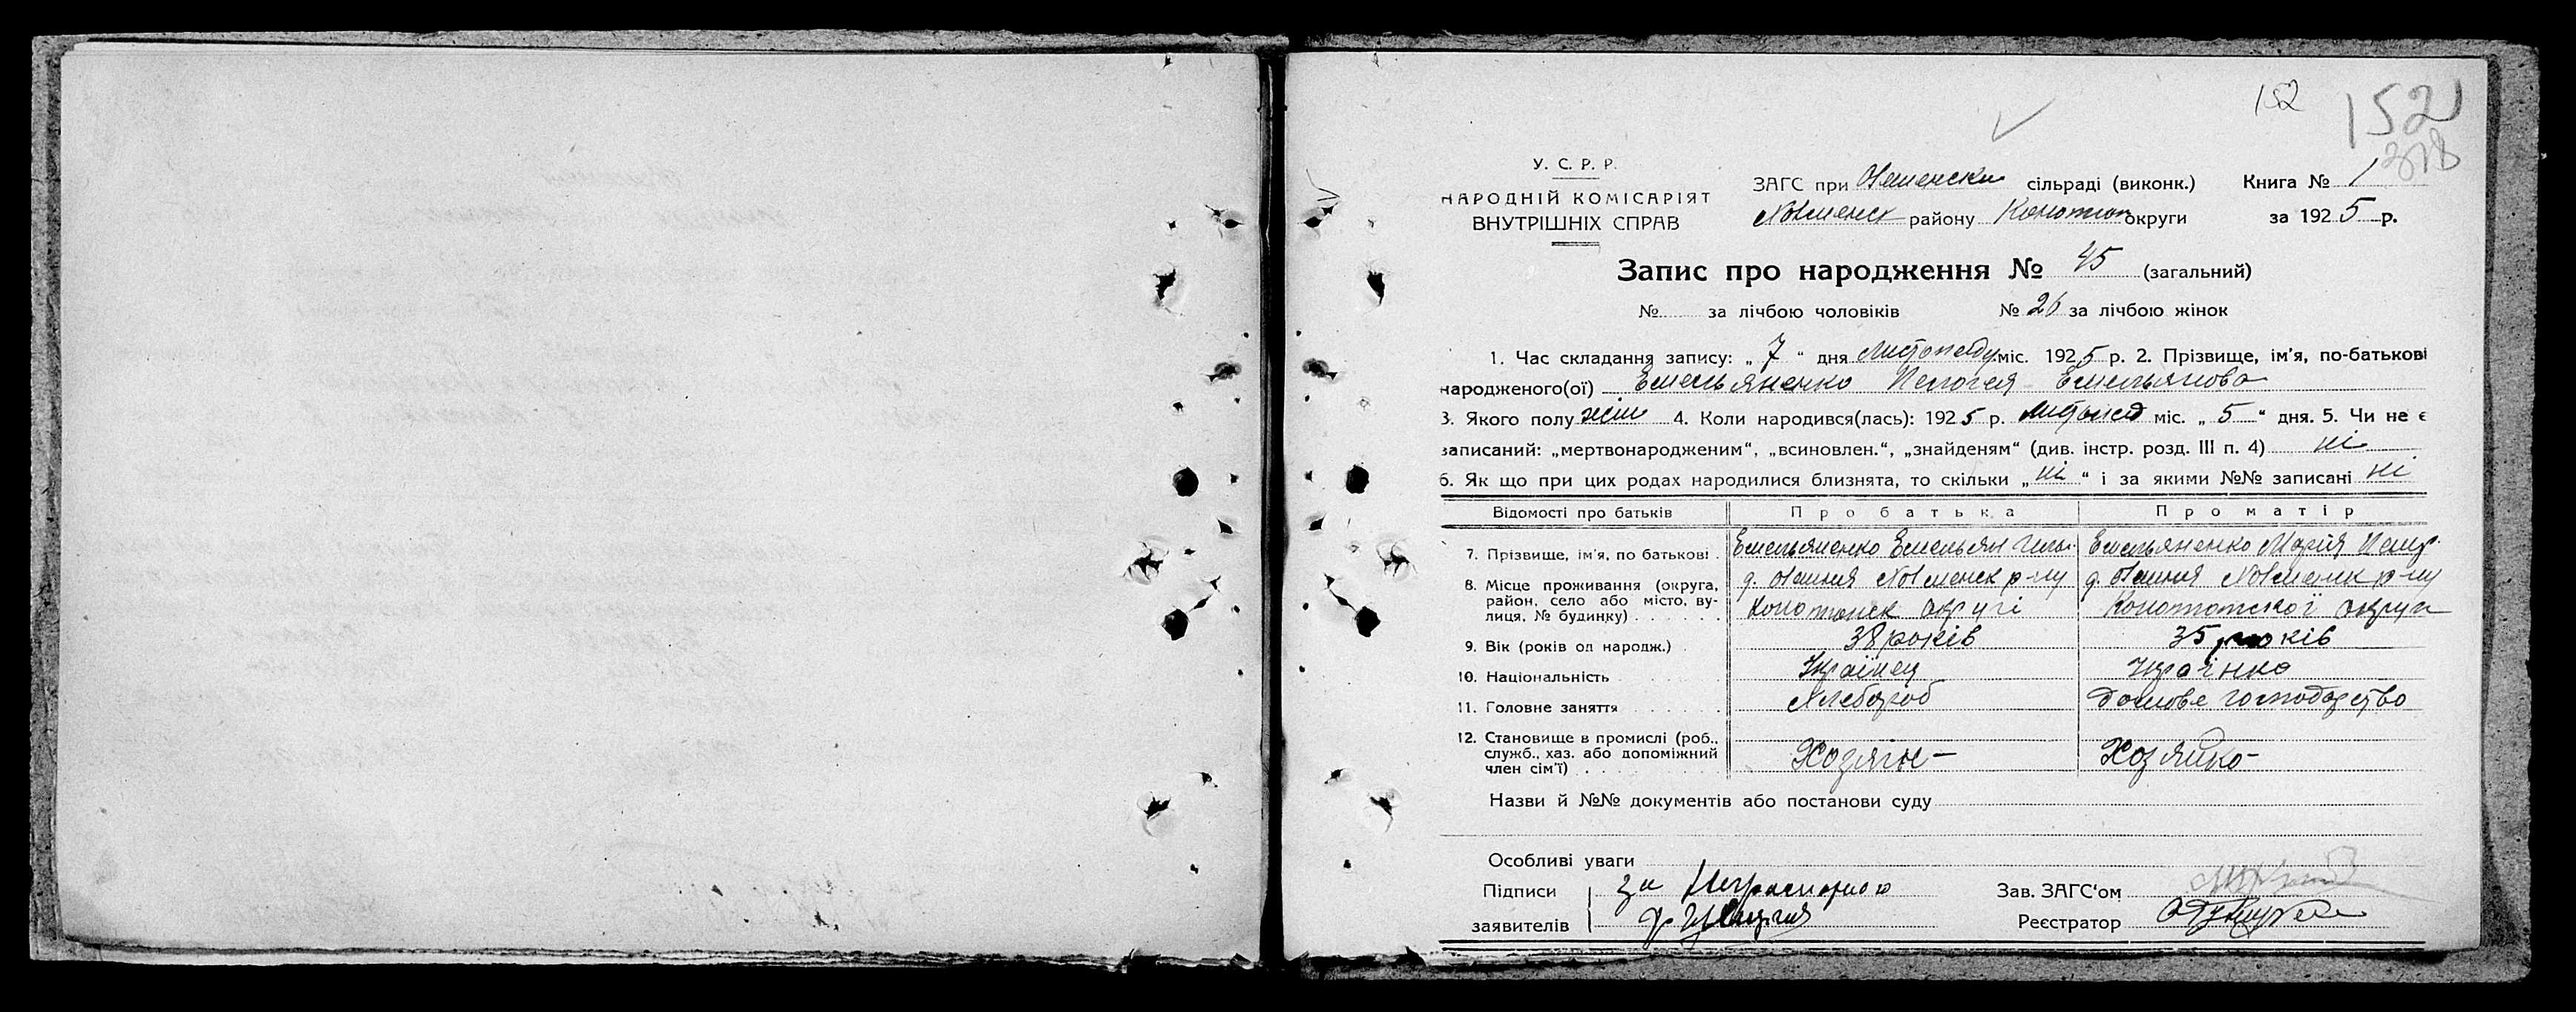 152
152
318
У. С. Р. Р.
НАРОДНІЙ КОМІСАРІЯТ
ВНУТРІШНІХ СПРАВ
ЗАГС при сільраді (виконк.) Книга № 1
району Конотоп округи за 1925 р.
Запис про народження № 45 (загальний)
№ за лічбою чоловіків № 26 за лічбою жінок
1. Час складання запису: „ 7 “ дня Листопаду міс. 1925 р. 2. Прізвище, ім'я, по-батькові
народженого(ої) Емельяненко Пелогея Емельянова
3. Якого полу жін 4. Коли народився(лась): 1925 р. Листопад міс. „ 5 “ дня. 5. Чи не є
записаний: „мертвонародженим“, „всиновлен.“, „знайденям“ (див. інстр. розд. III п. 4) ні
6. Як що при цих родах народилися близнята, то скільки „ ні “ і за якими №№ записані ні
Відомості про батьків Про батька Про матір
7. Прізвище, ім'я, по батькові Емельяненко Емельян Емельяненко Мария
8. Місце проживання (округа, район, село або місто, вулиця, № будинку) Конотопск округі Конотопської округи
9. Вік (років од народж.) 38 років 35 років
10. Національність Українец Українка
11. Головне заняття Хлебороб Домове господарство
12. Становище в промислі (роб., служб., хаз. або допоміжний член сім'ї) Хозяїн Хозяйка
Назви й №№ документів або постанови суду
Особливі уваги
Підписи за Зав. ЗАГС'ом
заявителів Реєстратор